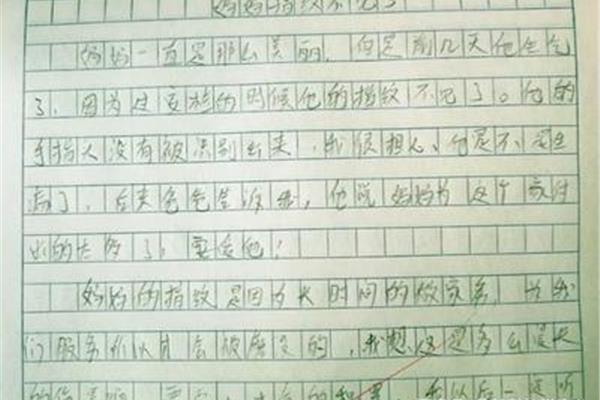 妈妈指纹不见了
妈妈一直是那么美丽，但是前几天他生气
了，因为过安检的时候他的指纹不见了。他的
手指人没有被识别出来，我很担心，他是不是生
病了，后来爸爸告诉我，他说妈妈为这个家付
出的太多了，要爱他！
妈妈的指纹是因为长时间的做家务，为我
们服务所以才会被磨灭的，我想，这是多么漫长
的 我以后一定听